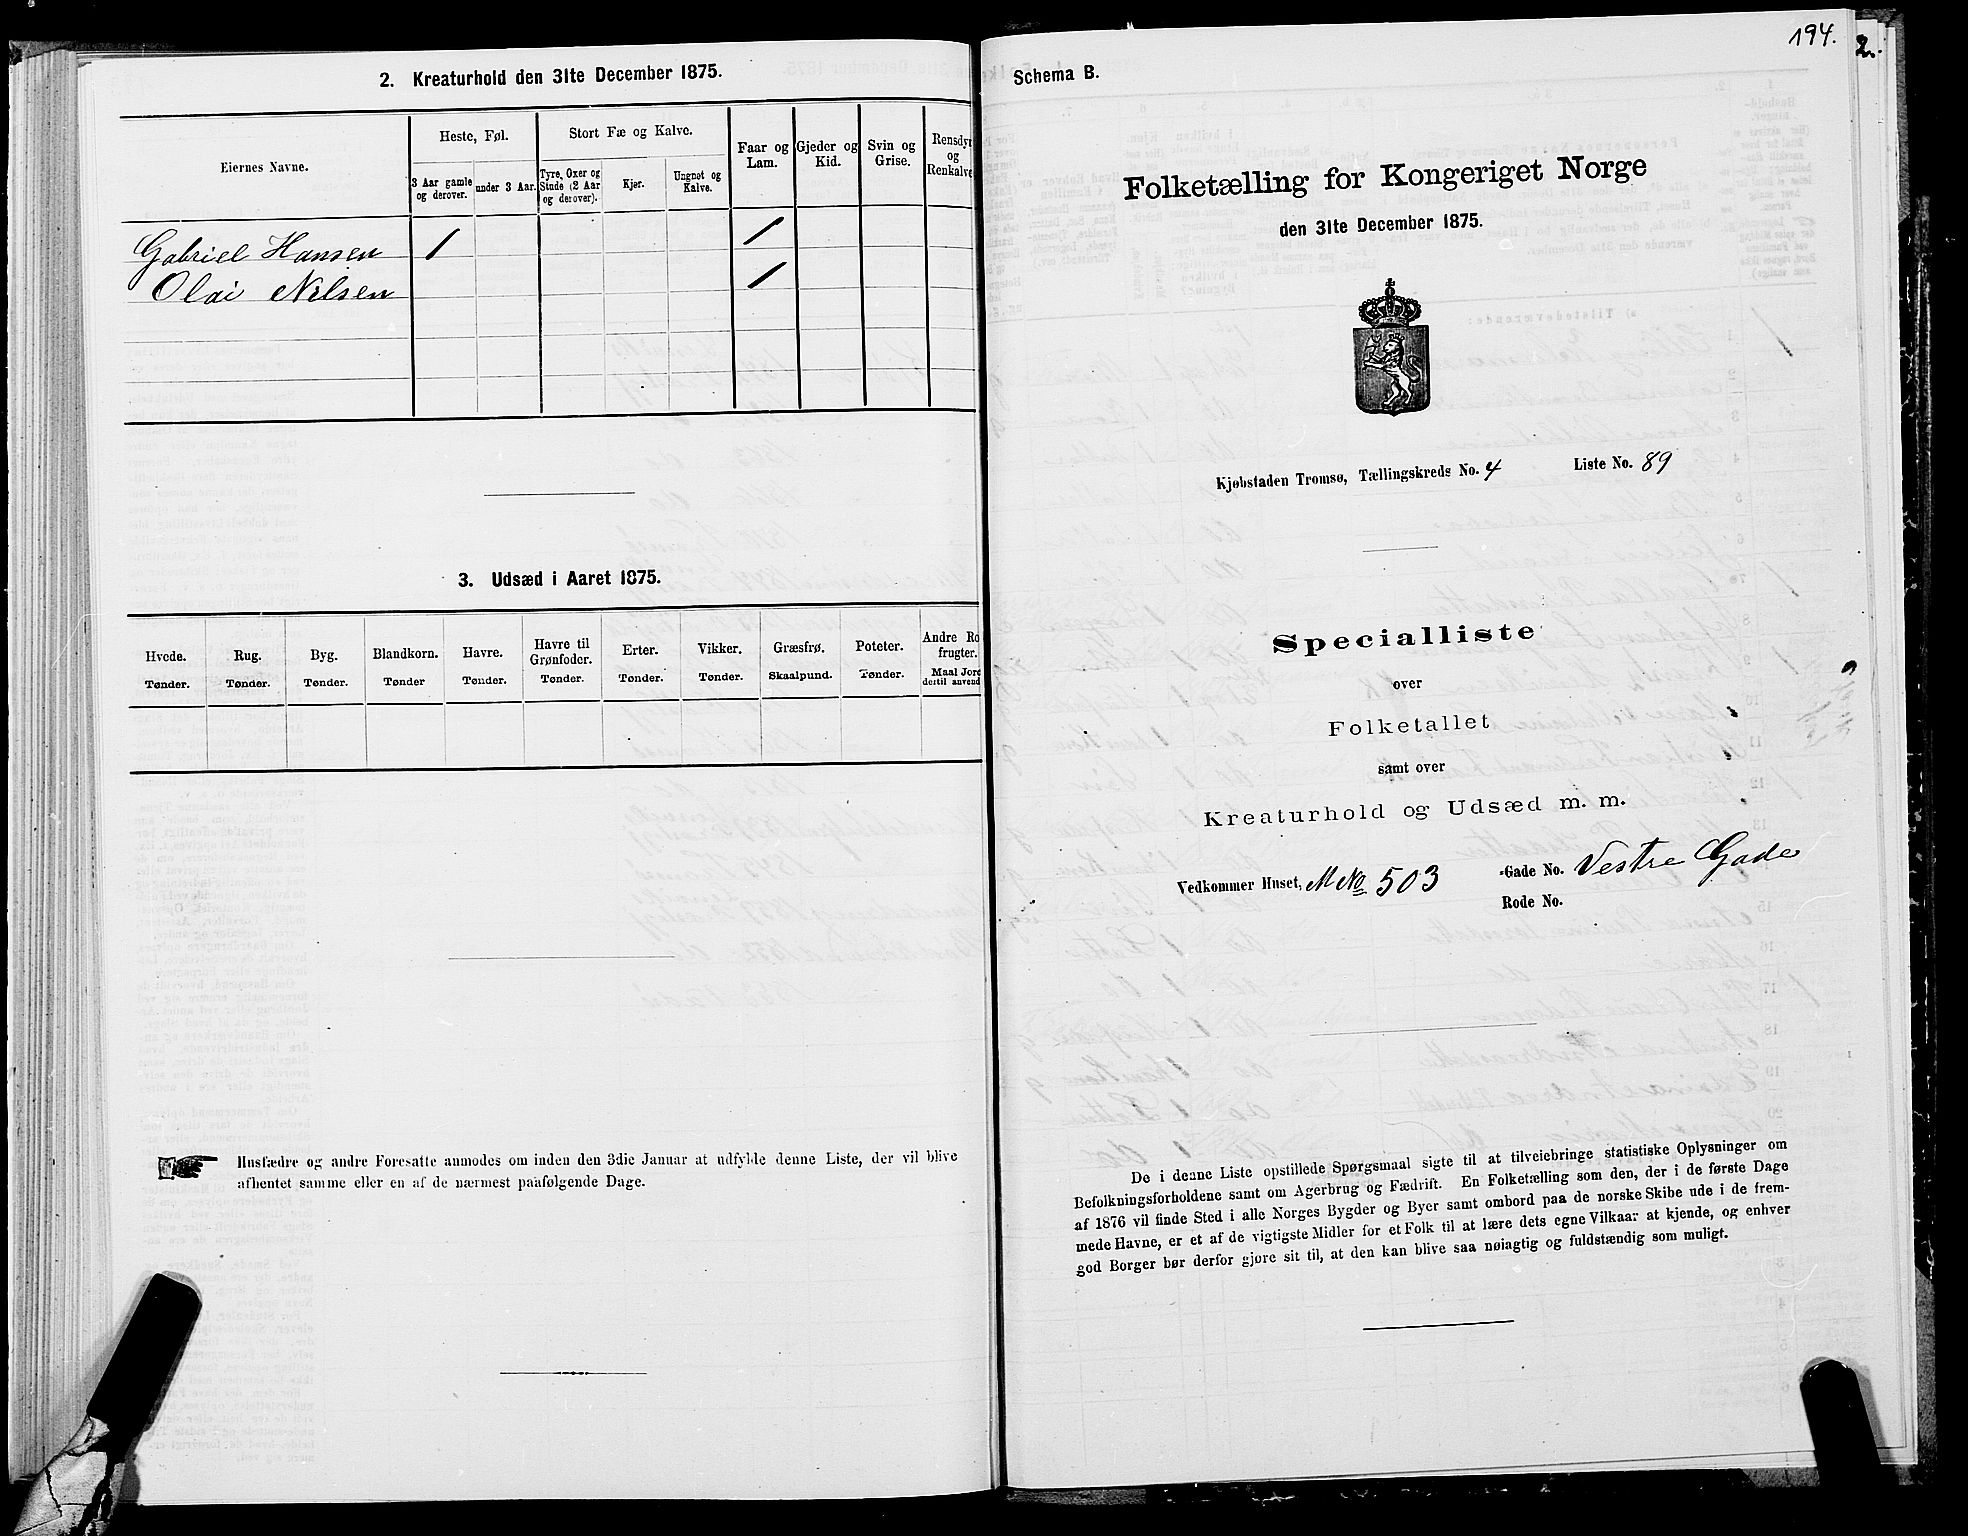 2. Kreaturhold den 31te December 1875.
Eiernes Navne.
Heste, Føl.
Stort Fæ og Kalve.
Faar og Lam.
Gjeder og Kid.
Svin og Grise.
Rensdyr og Renkalve
3 Aar gamle og derover.
under 3 Aar.
Tyre, Oxer og Stude (2 Aar og derover).
Kjør.
Ungnøt og Kalve.
Gabriel Hansen 1 1
Olai Nilsen 1
3. Udsæd i Aaret 1875.
Hvede. Rug. Byg. Blandkorn. Havre. Havre til Grønfoder. Erter. Vikker. Græsfrø. Poteter. Andre Ro frugter.
Tønder. Tønder. Tønder. Tønder Tønder. Tønder. Tønder. Tønder. Skaalpund. Tønder. Maal Jord dertil anvend
Husfædre og andre Foresatte anmodes om inden den 3die Januar at udfylde denne Liste, der vil blive
afhentet samme eller en af de nærmest paafølgende Dage.
194.
2.
Schema B.
Folketælling for Kongeriget Norge
den 31te December 1875.
Kjøbstaden Tromsø, Tællingskreds No. 4 Liste No. 89
Specialliste
over
Folketallet
samt over
Kreaturhold og Udsæd m. m.
Vedkommer Huset, M No 503 -Gade No. Vestre Gade
Rode No.
De i denne Liste opstillede Spørgsmaal sigte til at tilveiebringe statistiske Oplysninger om
Befolkningsforholdene samt om Agerbrug og Fædrift. En Folketælling som den, der i de første Dage
af 1876 vil finde Sted i alle Norges Bygder og Byer samt ombord paa de norske Skibe ude i de frem-
mede Havne, er et af de vigtigste Midler for et Folk til at lære dets egne Vilkaar at kjende, og enhver
god Borger bør derfor gjøre sit til, at den kan blive saa nøiagtig og fuldstændig som muligt.